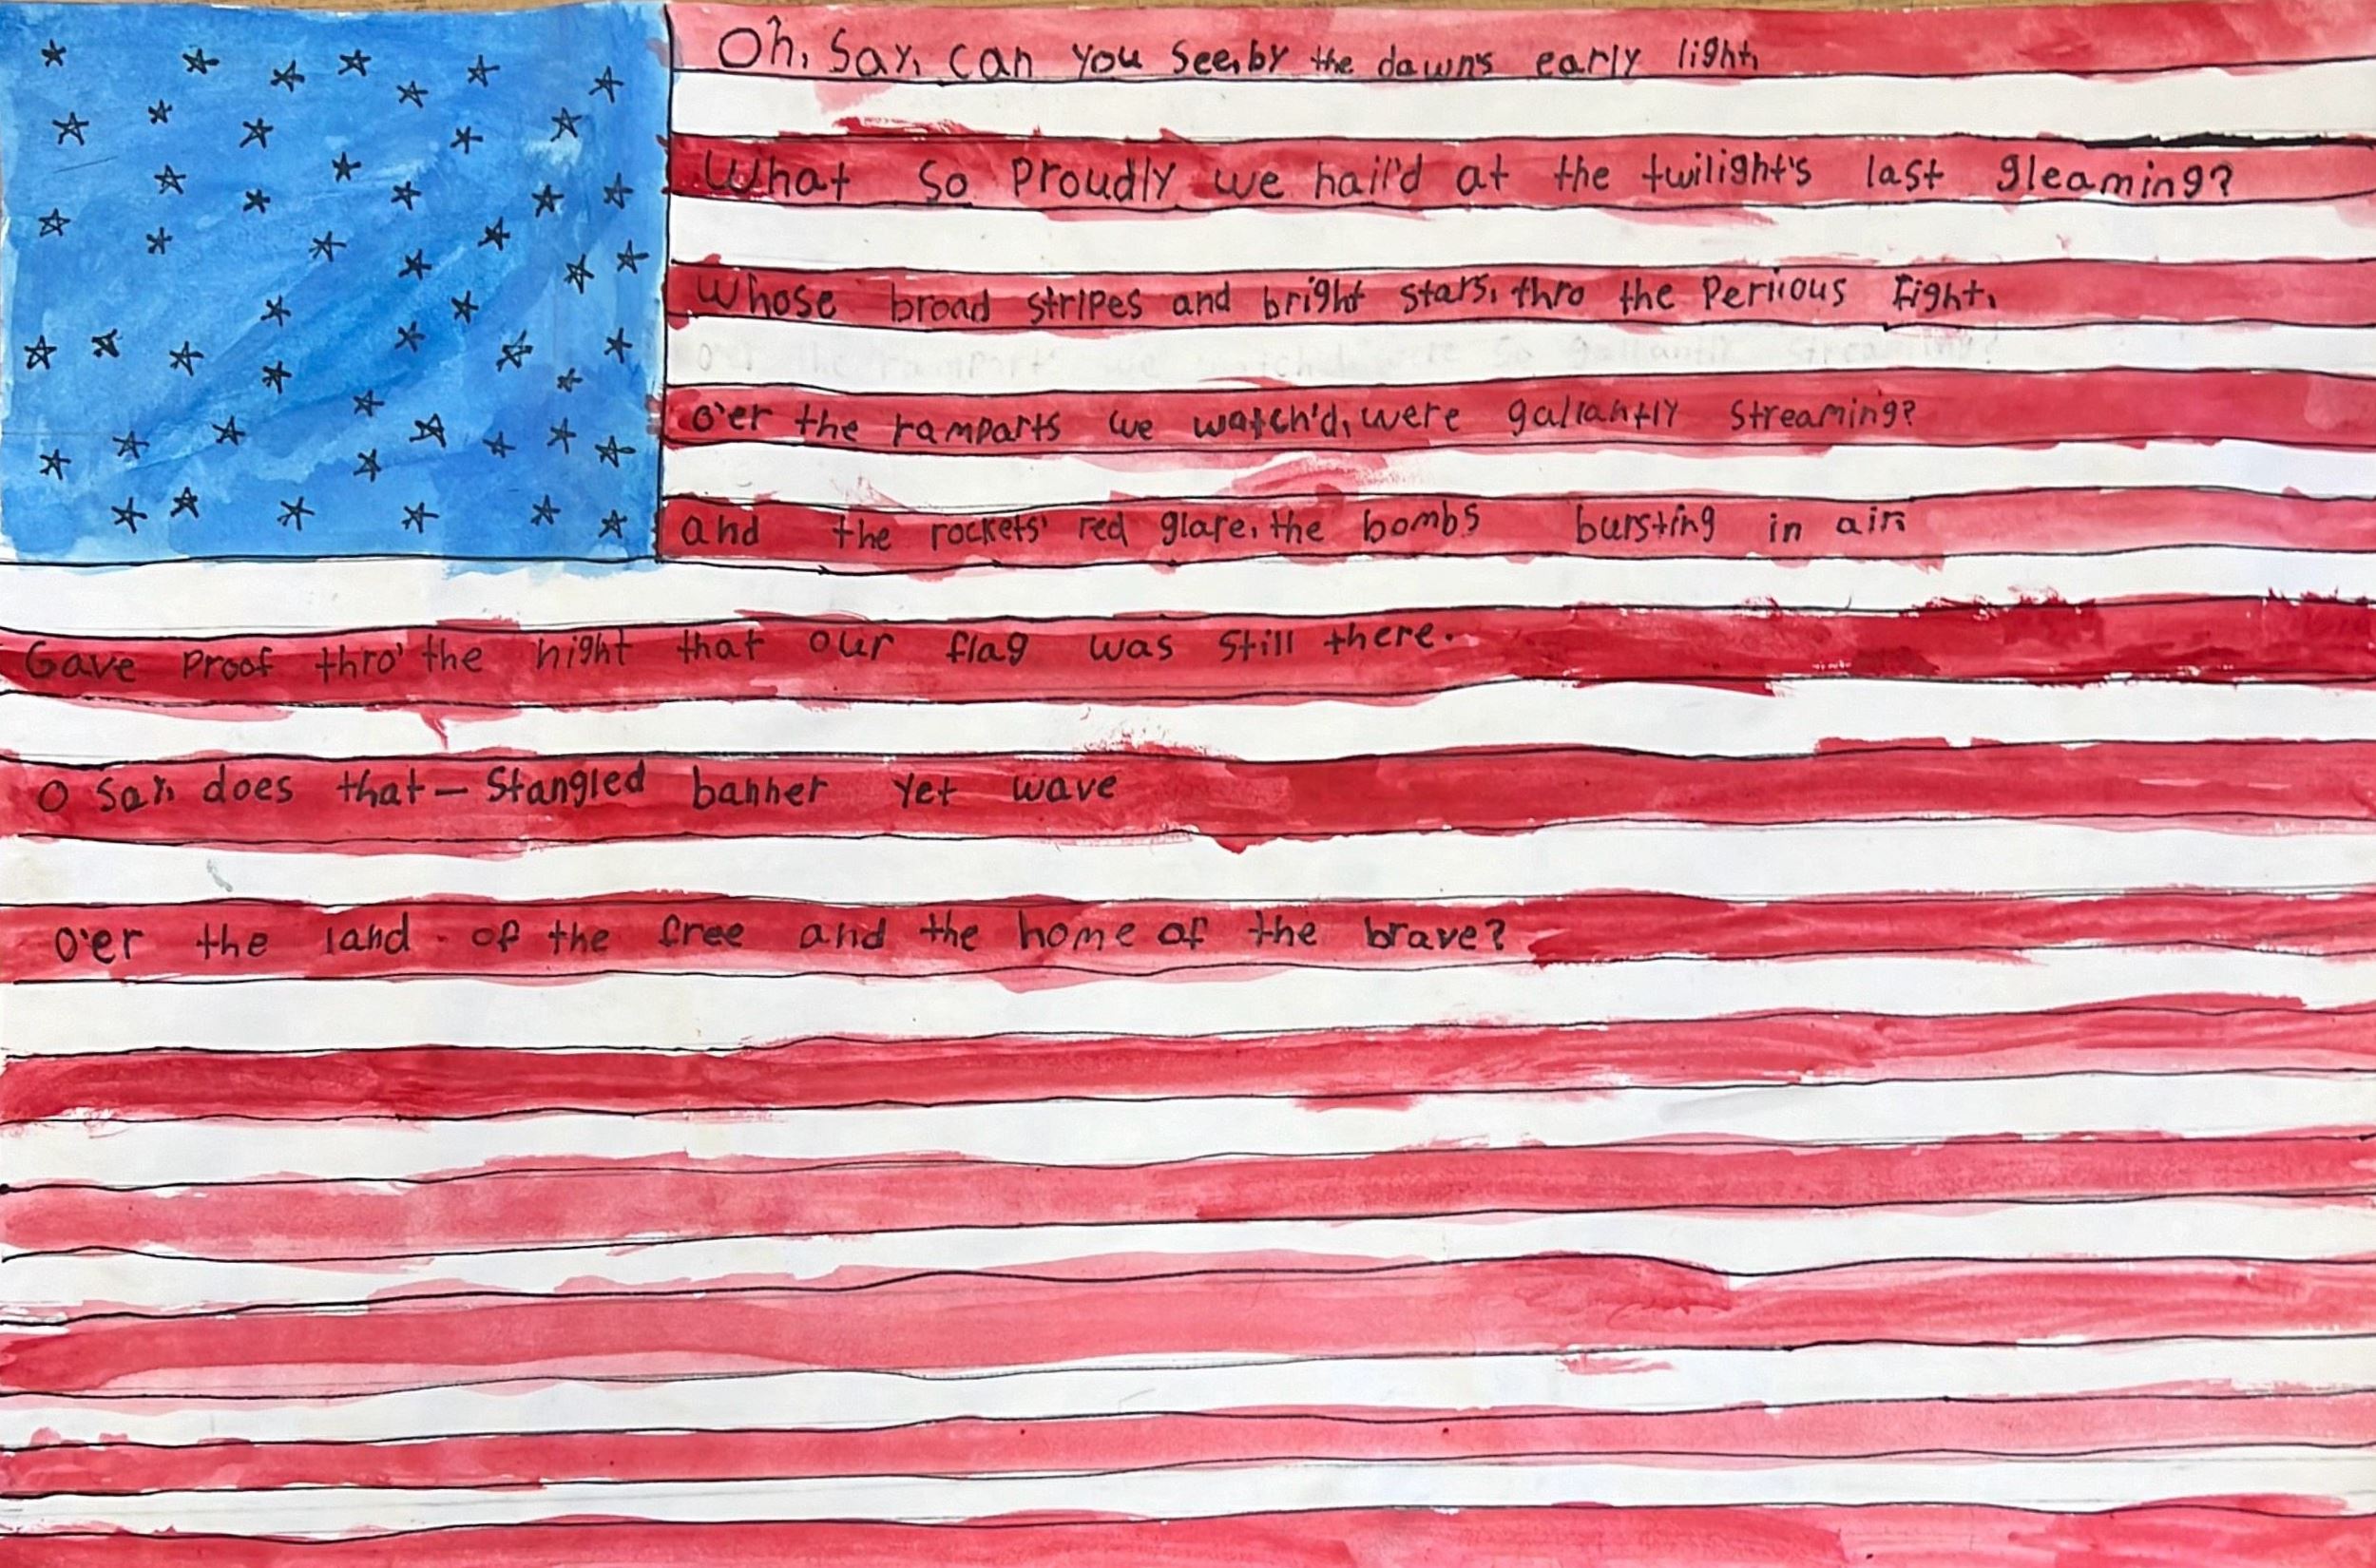 Oh, Say, can you see, by the dawn's early light,
What so proudly we hail'd at the twilight's last gleaming?
Whose broad stripes and bright stars, thro the Perilous fight,
o'er the ramparts we watch'd, were gallantly streaming?
and the rockets' red glare, the bombs bursting in air,
Gave proof thro' the night that our flag was still there.
O say, does that — Stangled banner yet wave
o'er the land of the free and the home of the brave?